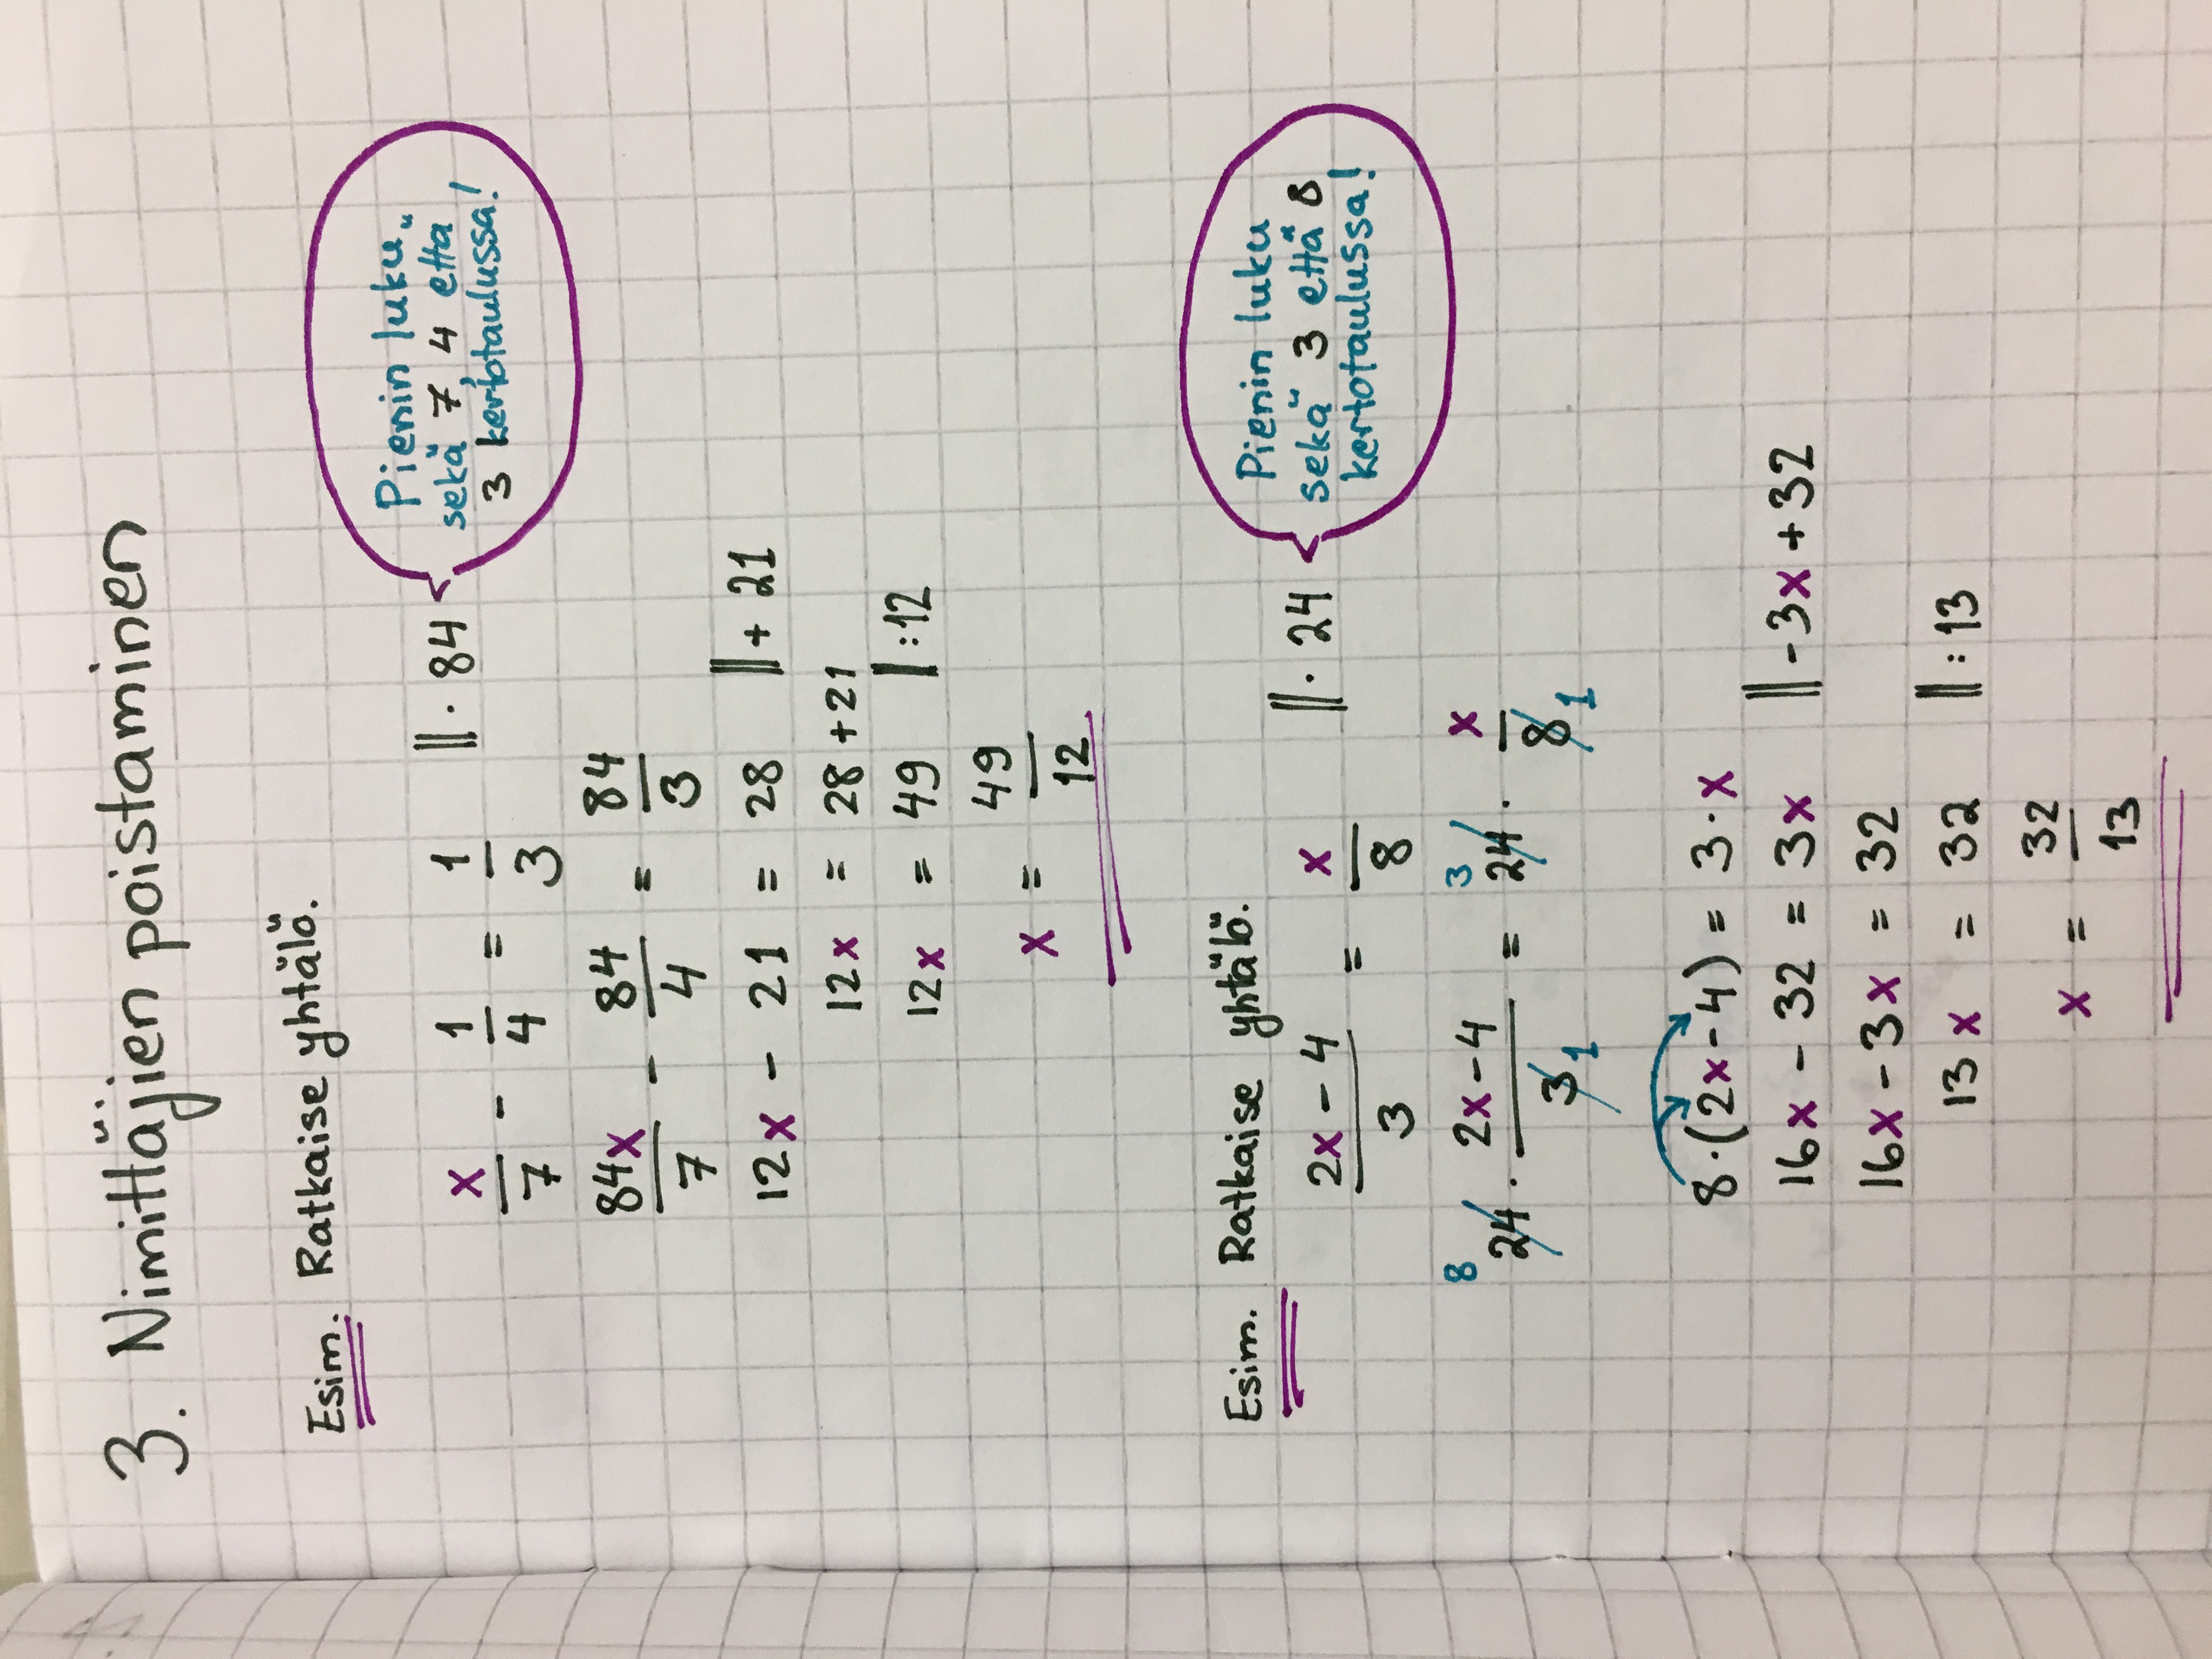 3. Nimittäjien poistaminen
Esim. Ratkaise yhtälö.
x/7 - 1/4 = 1/3 || · 84
Pienin luku
sekä 7 4 että
3 kertotaulussa!
84x/7 - 84/4 = 84/3
12x - 21 = 28 || + 21
12x = 28 + 21
12x = 49 || :12
x = 49/12
Esim. Ratkaise yhtälö.
(2x - 4)/3 = x/8 || · 24
Pienin luku
sekä 3 että 8
kertotaulussa!
8 24 · (2x - 4)/3 1 = 3 24 · x/8 1
8·(2x - 4) = 3·x
16x - 32 = 3x || - 3x + 32
16x - 3x = 32
13x = 32 || :13
x = 32/13